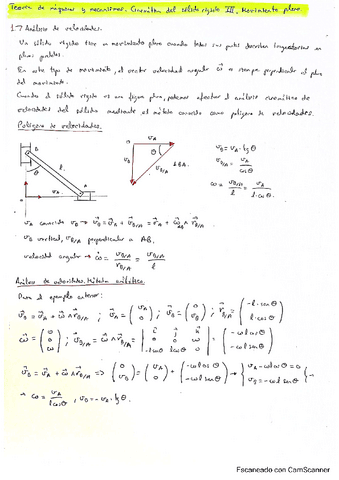 Teoría de máquinas y mecanismos. Cinemática del sólido rígido III, Movimiento plano.
1.7 Análisis de velocidades.
Un sólido rígido tiene un movimiento plano cuando todos sus puntos describen trayectorias en
planos paralelos.
En este tipo de movimiento, el vector velocidad angular ω⃗ es siempre perpendicular al plano
del movimiento.
Cuando el sólido rígido es una figura plana, podemos efectuar el análisis cinemático de
velocidades del sólido mediante el método conocido como polígono de velocidades.
Polígono de velocidades.
B
θ
l
A
v_A
O v_A
θ
v_B
v_B/A
⊥BA
v_B = v_A · tg θ
v_B/A = v_A / cos θ
ω = v_B/A / l = v_A / l · cos θ
v_A conocida
v_B vertical, v_B/A perpendicular a AB,
velocidad angular → ω⃗ = v_B/A / r_B/A = v_B/A / l
Análisis de velocidades. Método analítico.
Para el ejemplo anterior:
v⃗_B = v⃗_A + ω⃗ ∧ r⃗_B/A ; v⃗_A = (v_A 0) ; v⃗_B = (0 v_B) ; r⃗_B/A = (-l · sen θ l · cos θ)
ω⃗ = (0 0 ω) ; v⃗_B/A = ω⃗ ∧ r⃗_B/A = | i⃗ j⃗ k⃗ 0 0 ω -l sen θ l cos θ 0 | = (-ω l cos θ -ω l sen θ)
v⃗_B = v⃗_A + ω⃗ ∧ r⃗_B/A => (0 v_B) = (v_A 0) + (-ω l cos θ -ω l sen θ) → { v_A - ω l cos θ = 0 v_B = -ω l sen θ }
→ ω = v_A / l cos θ , v_B = -v_A · tg θ
Escaneado con CamScanner